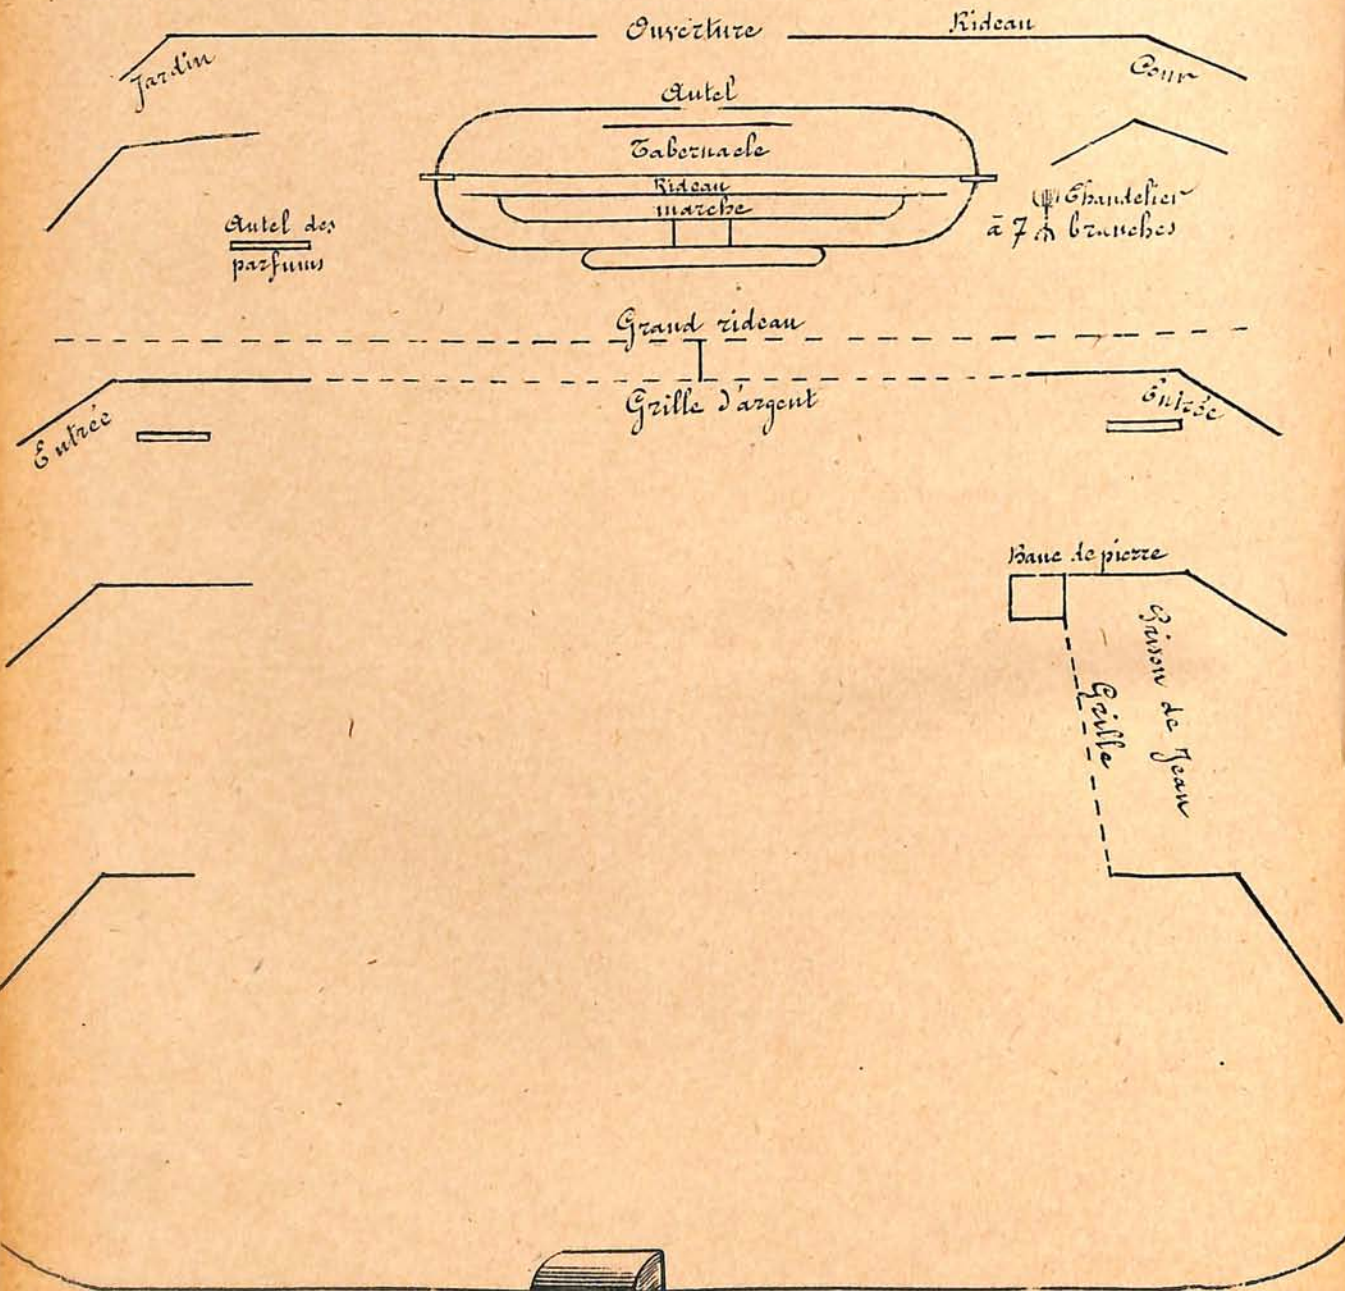 Ouverture
Rideau
Jardin
Cour
Autel
Tabernacle
Rideau
marche
Autel des
parfums
Chandelier
à 7 branches
Grand rideau
Grille d'argent
Entrée
Entrée
Banc de pierre
Prison de Jean
Grille